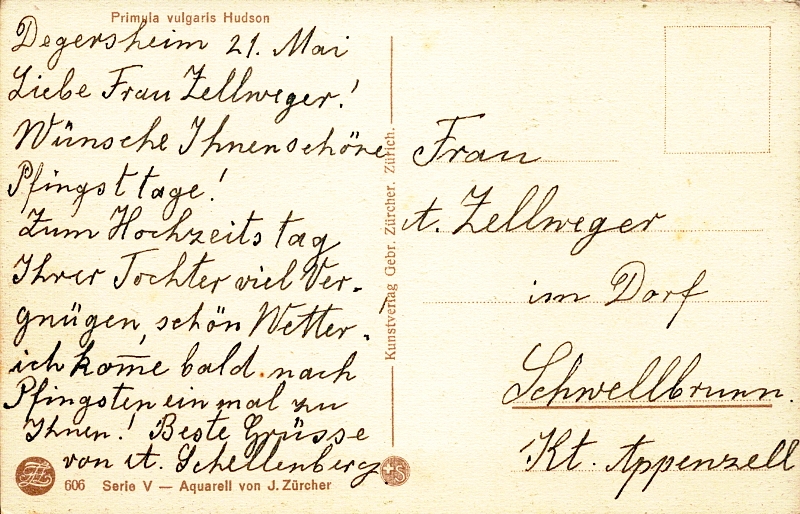 Primula vulgaris Hudson
Degersheim 21. Mai
Liebe Frau Zellweger!
Wünsche Ihnen schöne
Pfingsttage!
Zum Hochzeitstag
Ihrer Tochter viel Ver-
gnügen, schön Wetter.
ich kom̅e bald nach
Pfingsten einmal zu
Ihnen! Beste Grüsse
von A. Schellenberg.
606 Serie V — Aquarell von J. Zürcher
Kunstverlag Gebr. Zürcher. Zürich.
Frau
A. Zellweger
im Dorf
Schwellbrunn.
Kt. Appenzell